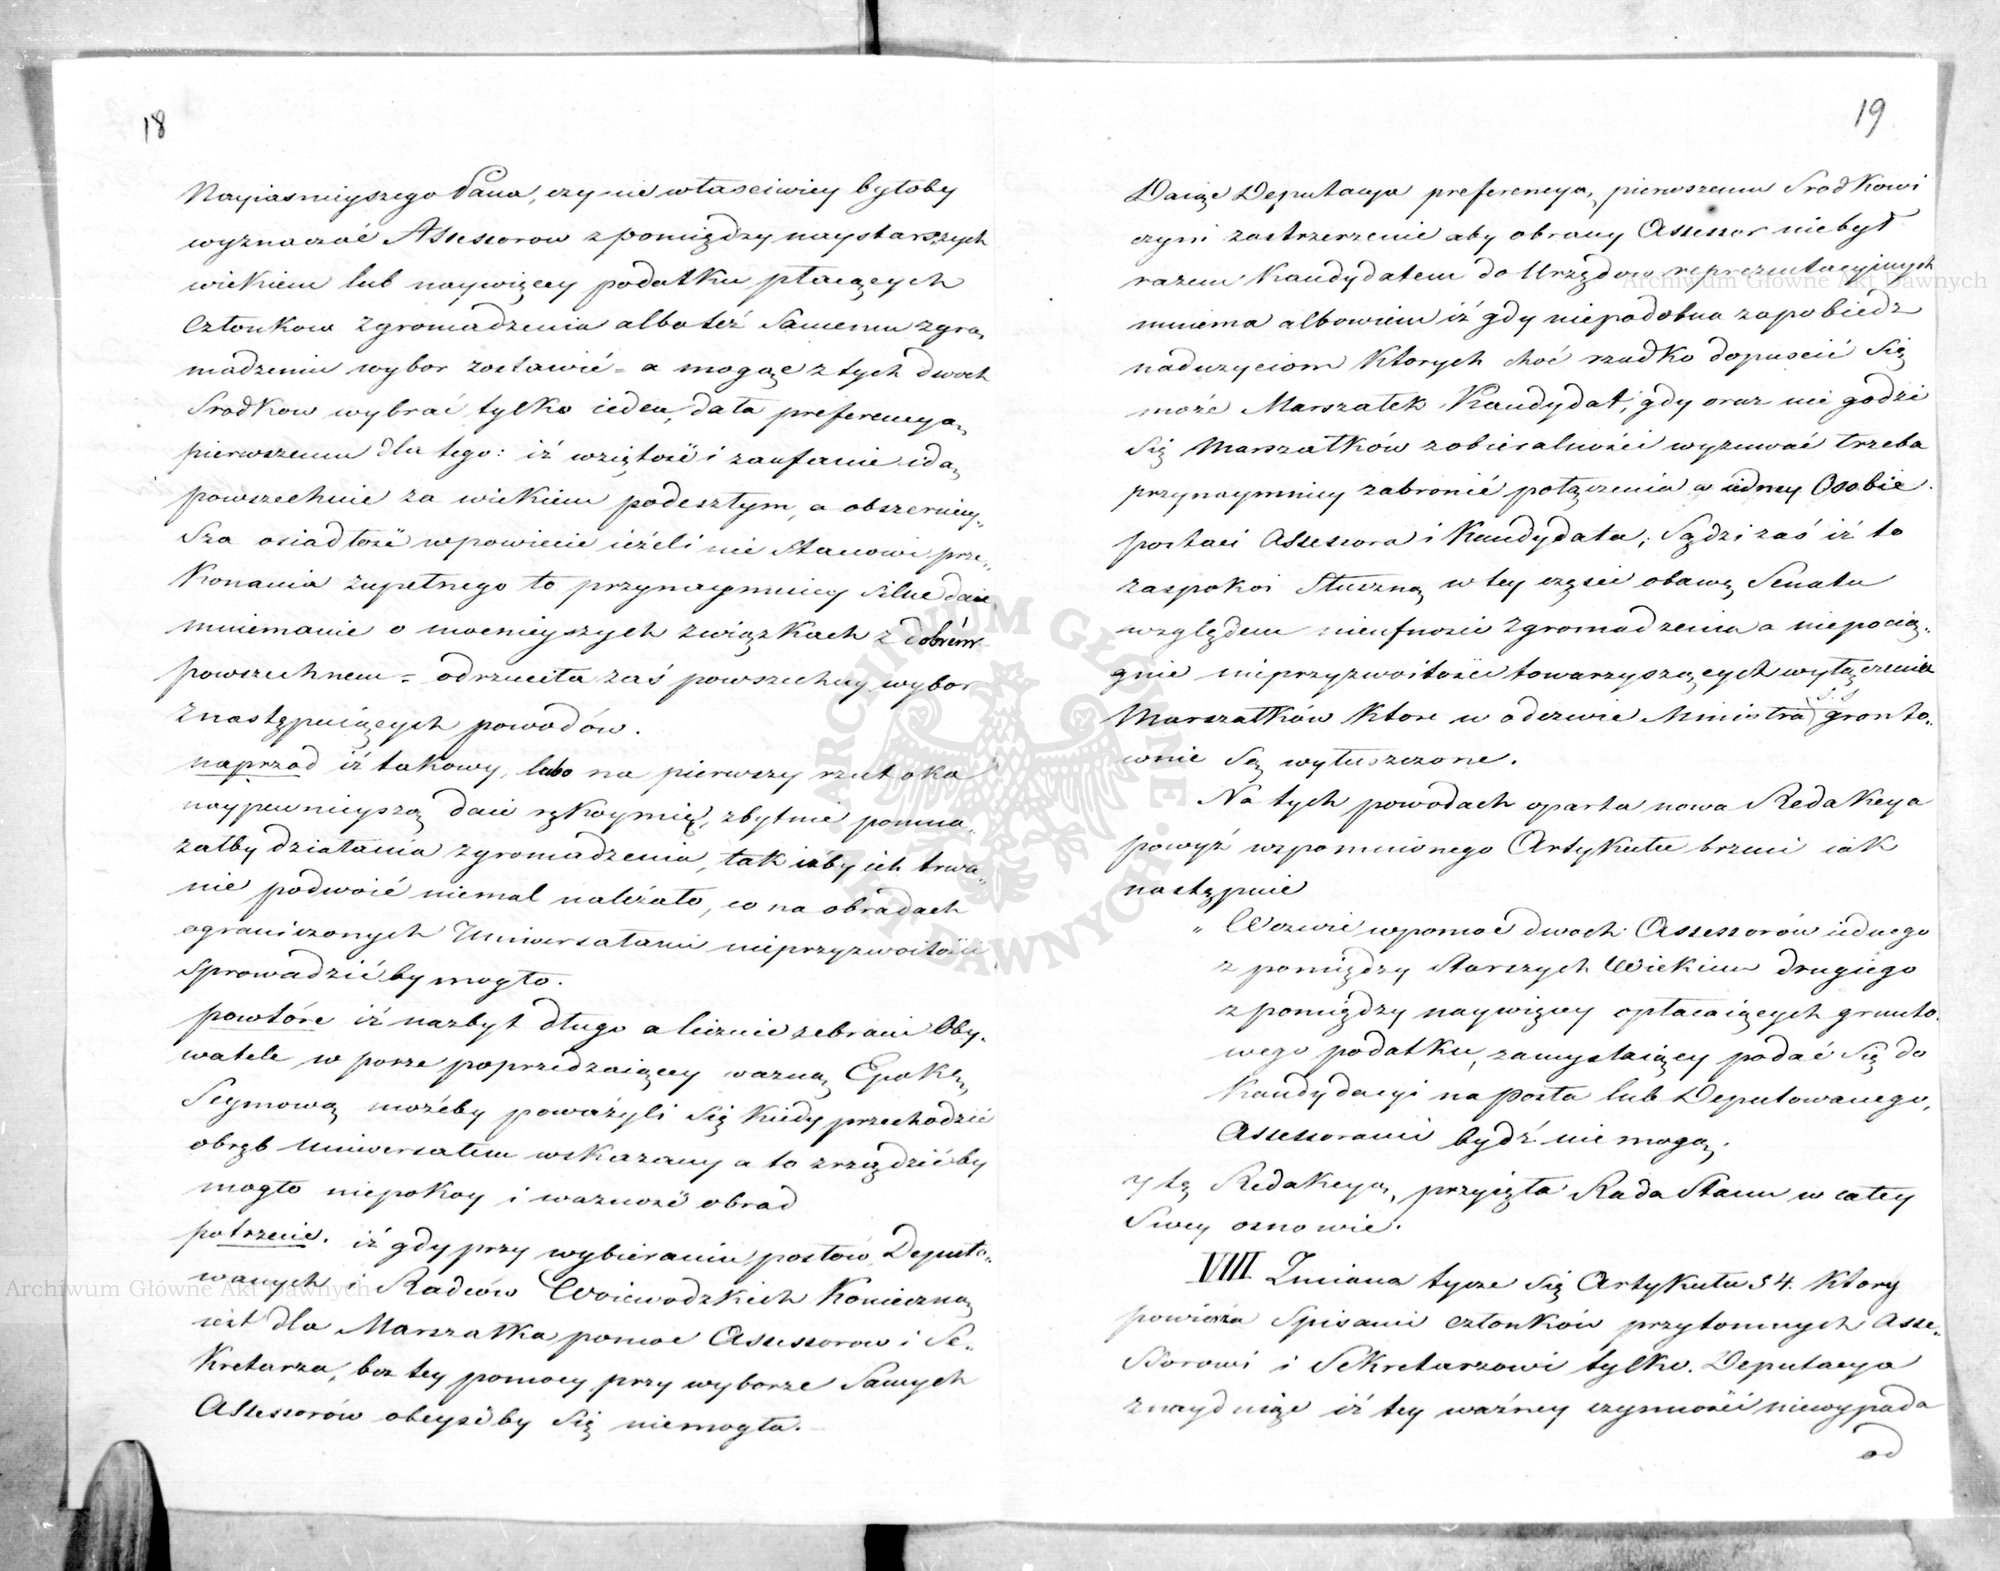 18
Nayiasnieyszego Pana, czy nie własciwiey byłoby
wyznaczać Assessorow z pomiędzy naystarszych
wiekiem lub naywięcey podatku płacących
Członkow Zgromadzenia albo też Samemu zgro„
madzeniu wybor zostawić = a mogąc z tych dwoch
Srodkow wybrać tylko ieden, dała preferencyą
pierwszemu dla tego: iż wziętość i zaufanie idą
powszechnie za wiekiem podeszłym, a obszerniey„
Sza osiadłość w powiecie ieżeli nie Stanowi prze„
Konania zupełnego to przynaymniey Silne daie
mniemanie o mocnieyszych związkach z dobrem
powszechnem = odrzuciła zaś powszechny wybor
z następuiących powodów.
naprzod iż takowy, lubo na pierwszy rzut oka
naypewnieyszą daie rękoymię, zbytnie pomna„
załby działania Zgromadzenia, tak iżby ich trwa„
nie podwoić niemal należało, co na obradach
ograniczonych Uniwersałami nieprzyzwoitość
Sprowadzić by mogło.
powtóre iż nazbyt długo a licznie zebrani Oby„
watele w porze poprzedzaiącey wazną Epokę
Seymową możeby poważyli Się kiedy przechodzić
obręb Uniwersałem wskazany a to zrządzić by
mogło niepokoy i wazność obrad
potrzecie. iż gdy przy wybieraniu posłow Deputo„
wanych i Radców Woiewodzkich Konieczną
iest dla Marszałka pomoc Assessorow i Se„
Kretarza, bez tey pomocy przy wyborze Samych
Assessorów obeyść by Się niemogła.
19
Daiąc Deputacya preferencyą pierwszemu Srodkowi
czyni zastrzezenie aby obrany Assessor niebył
razem Kandydatem do Urzędow reprezentacyinych
mniema albowiem iż gdy niepodobna zapobiedz
naduzyciom Ktorych choć rzadko dopuscić Się
może Marszałek Kandydat, gdy oraz nie godzi
Się Marszałków z obieralności wyzuwać trzeba
przynaymniey zabronić połączenia w iedney Osobie
postaci Assessora i Kandydata; Sądzi zaś iż to
zaspokoi Słuszną w tey części obawę Senatu
względem nieufności Zgromadzenia a niepocią„
gnie nieprzyzwoitości towarzyszących wyłączeniu
Marszałków Ktore w odezwie Ministra S: S gronto„
wnie Są wyłuszczone.
Na tych powodach oparta nowa Redakcya
powyż wspomnionego Artykułu brzmi iak
następnie
„ Wezwie w pomoc dwoch Assessorów iednego
z pomiędzy Starszych Wiekiem drugiego
z pomiędzy naywięcey opłacaiących grunto„
wego podatku, zamyslaiący podać Się do
Kandydacyi na Posła lub Deputowanego,
Assessorami bydź nie mogą.
y tę Redakcyą, przyięła Rada Stanu w całey
Swey osnowie.
VIII Zmiana tycze Się Artykułu 34. Ktory
powierza Spisanie członków przytomnych Asse„
ssorowi i Sekretarzowi tylko. Deputacya
znayduiąc iż tey ważney czynności niewypada
od
Archiwum Główne Akt Dawnych
Archiwum Główne Akt Dawnych
ARCHIWUM GŁÓWNE
AKT DAWNYCH